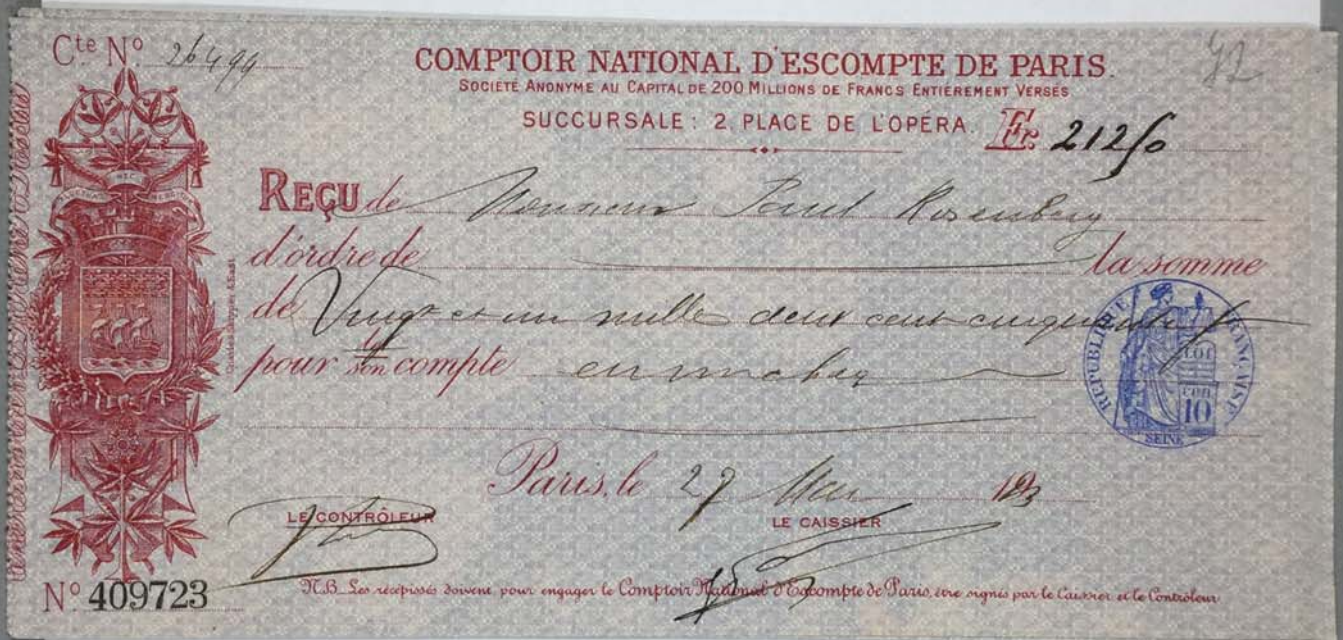 Cte No 26499
COMPTOIR NATIONAL D'ESCOMPTE DE PARIS.
SOCIÉTÉ ANONYME AU CAPITAL DE 200 MILLIONS DE FRANCS ENTIÈREMENT VERSÉS
SUCCURSALE: 2, PLACE DE L'OPÉRA. Fr. 21250
REÇU de Monsieur Paul Rosenberg
d'ordre de la somme
de Vingt et un mille deux cent cinquante f
pour son compte
RÉPUBLIQUE FRANÇAISE
LOI
10
SEINE
Paris, le 27 Mai
LE CONTRÔLEUR
LE CAISSIER
No 409723
N.B. Les récépissés doivent, pour engager le Comptoir National d'Escompte de Paris, être signés par le Caissier et le Contrôleur